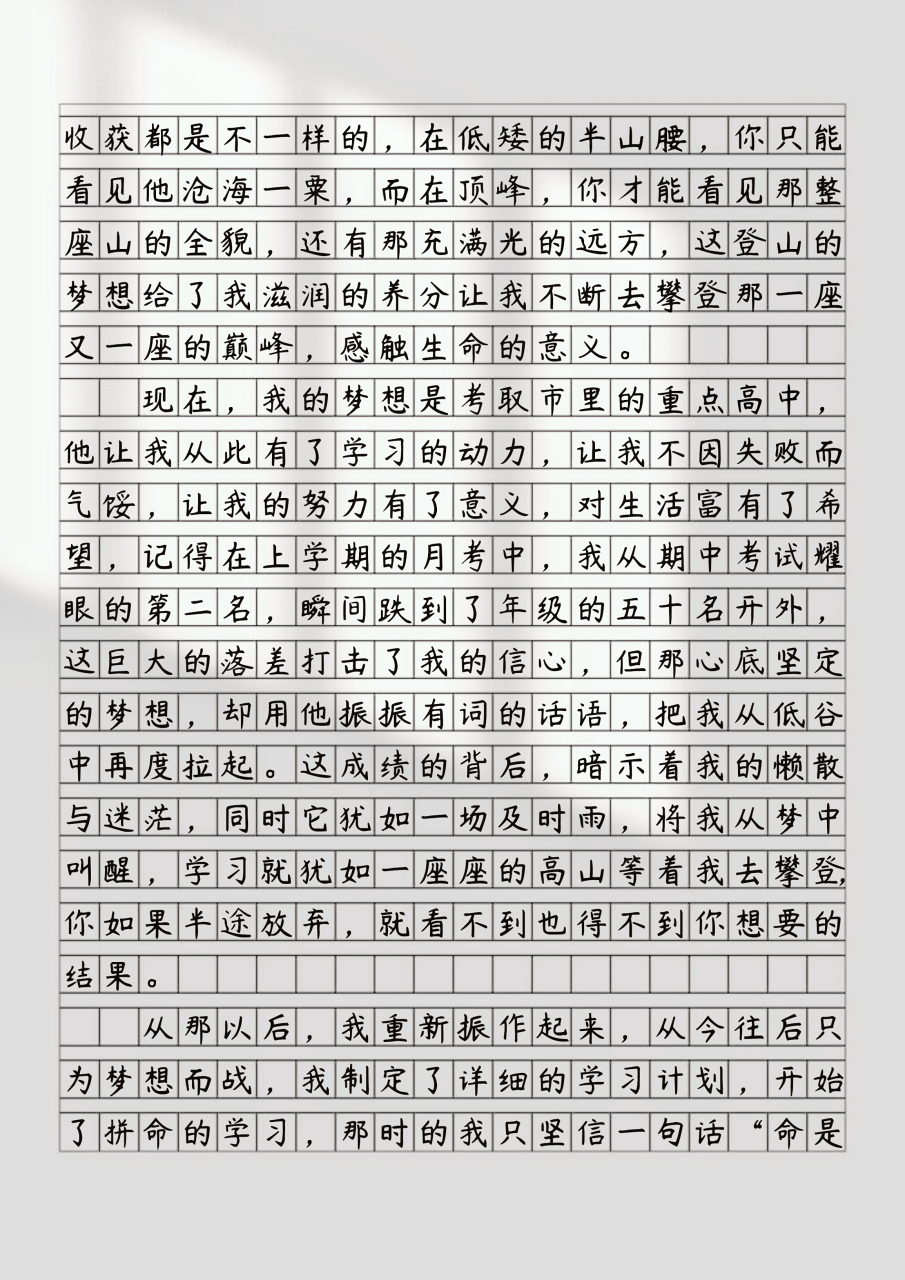 收获都是不一样的，在低矮的半山腰，你只能
看见他沧海一粟，而在顶峰，你才能看见那整
座山的全貌，还有那充满光的远方，这登山的
梦想给了我滋润的养分让我不断去攀登那一座
又一座的巅峰，感触生命的意义。
现在，我的梦想是考取市里的重点高中，
他让我从此有了学习的动力，让我不因失败而
气馁，让我的努力有了意义，对生活富有了希
望，记得在上学期的月考中，我从期中考试耀
眼的第二名，瞬间跌到了年级的五十名开外，
这巨大的落差打击了我的信心，但那心底坚定
的梦想，却用他振振有词的话语，把我从低谷
中再度拉起。这成绩的背后，暗示着我的懒散
与迷茫，同时它犹如一场及时雨，将我从梦中
叫醒，学习就犹如一座座的高山等着我去攀登，
你如果半途放弃，就看不到也得不到你想要的
结果。
从那以后，我重新振作起来，从今往后只
为梦想而战，我制定了详细的学习计划，开始
了拼命的学习，那时的我只坚信一句话“命是